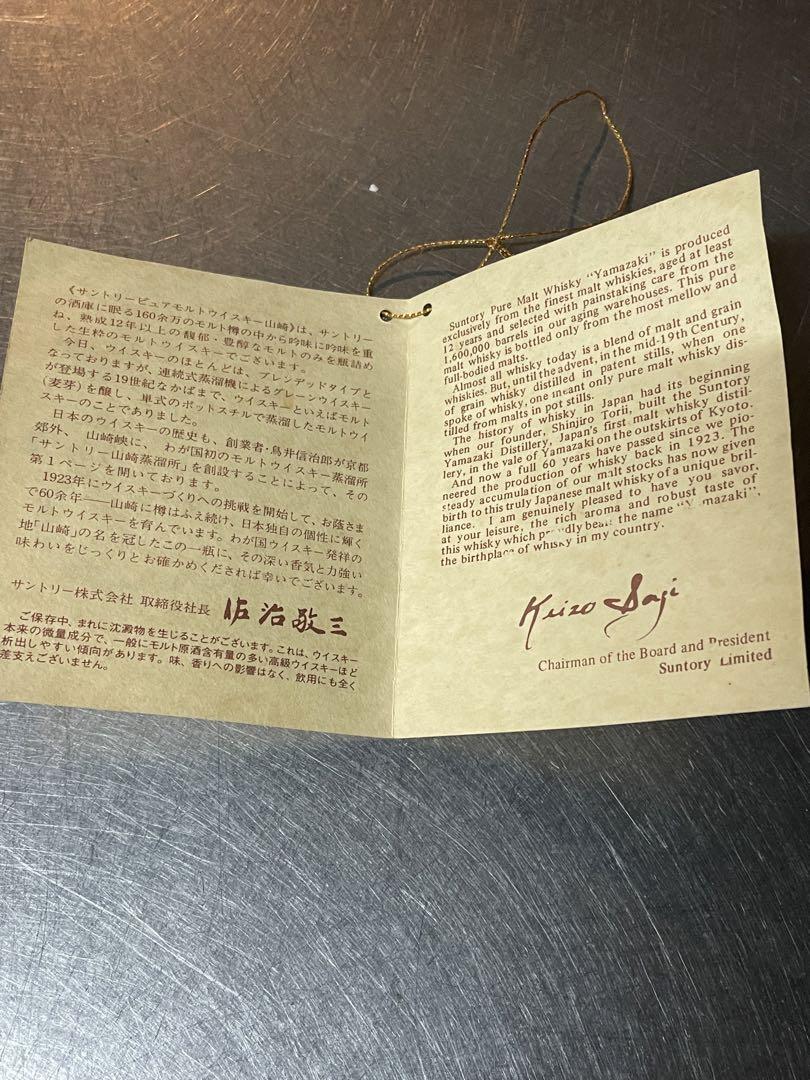 《サントリーピュアモルトウイスキー山崎》は、サントリー
の酒庫に眠る160余万のモルト樽の中から吟味に吟味を重
ね、熟成12年以上の馥郁・豊醇なモルトのみを瓶詰め
した生粋のモルトウイスキーでございます。
今日、ウイスキーのほとんどは、ブレンデッドタイプと
なっておりますが、連続式蒸溜機によるグレーンウイスキー
が登場する19世紀なかばまで、ウイスキーといえばモルト
(麦芽)を醸し、単式のポットスチルで蒸溜したモルトウイ
スキーのことでありました。
日本のウイスキーの歴史も、創業者・鳥井信治郎が京都
郊外、山崎峡に、わが国初のモルトウイスキー蒸溜所
「サントリー山崎蒸溜所」を創設することによって、その
第1ページを開いております。
1923年にウイスキーづくりへの挑戦を開始して、お蔭さま
で60余年――山崎に樽はふえ続け、日本独自の個性に輝く
モルトウイスキーを育んでいます。わが国ウイスキー発祥の
地「山崎」の名を冠したこの一瓶に、その深い香気と力強い
味わいをじっくりとお確かめくだされば幸いでございます。
サントリー株式会社 取締役社長 佐治敬三
ご保存中、まれに沈澱物を生じることがございます。これは、ウイスキー
本来の微量成分で、一般にモルト原酒含有量の多い高級ウイスキーほど
析出しやすい傾向があります。味、香りへの影響はなく、飲用にも全く
差支えございません。
Suntory Pure Malt Whisky “Yamazaki” is produced
exclusively from the finest malt whiskies, aged at least
12 years and selected with painstaking care from the
1,600,000 barrels in our aging warehouses. This pure
malt whisky is bottled only from the most mellow and
full-bodied malts.
Almost all whisky today is a blend of malt and grain
whiskies. But, until the advent, in the mid-19th Century,
of grain whisky distilled in patent stills, when one
spoke of whisky, one meant only pure malt whisky dis-
tilled from malts in pot stills.
The history of whisky in Japan had its beginning
when our founder, Shinjiro Torii, built the Suntory
Yamazaki Distillery, Japan's first malt whisky distil-
lery, in the vale of Yamazaki on the outskirts of Kyoto.
And now a full 60 years have passed since we pio-
neered the production of whisky back in 1923. The
steady accumulation of our malt stocks has now given
birth to this truly Japanese malt whisky of a unique bril-
liance. I am genuinely pleased to have you savor,
at your leisure, the rich aroma and robust taste of
this whisky which proudly bears the name “Yamazaki”,
the birthplace of whisky in my country.
Keizo Saji
Chairman of the Board and President
Suntory Limited